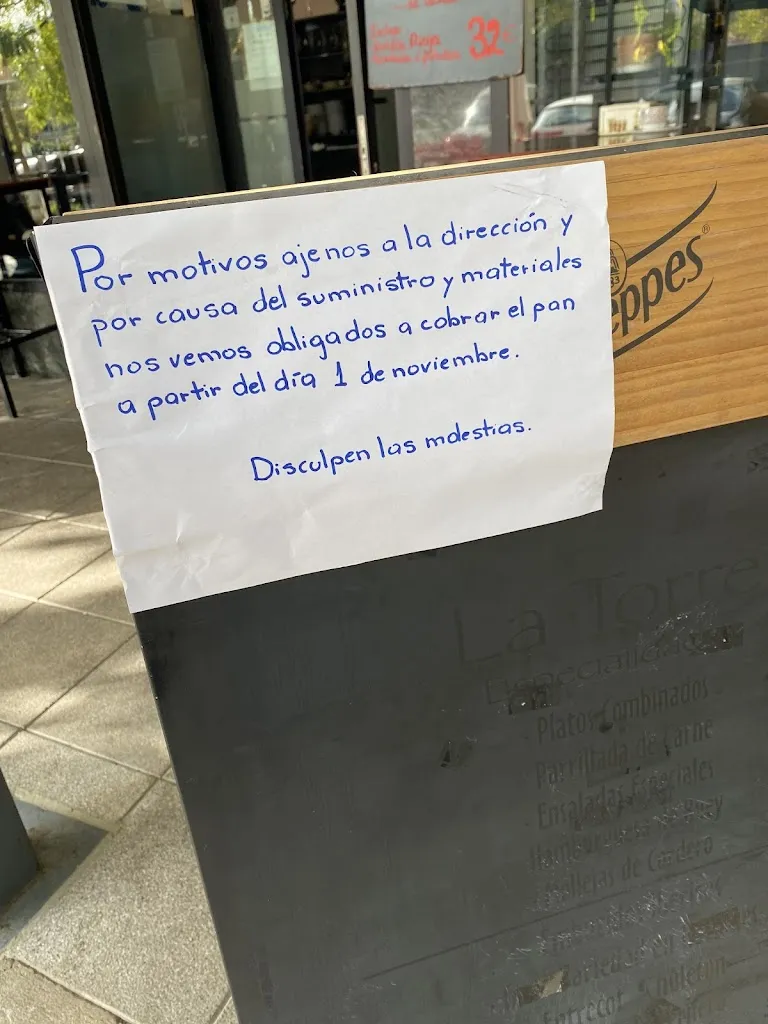 32
Por motivos ajenos a la dirección y
por causa del suministro y materiales
nos vemos obligados a cobrar el pan
a partir del día 1 de noviembre.
Disculpen las molestias.
eppes®
La Torre
Platos Combinados
Parrillada de Carne
Ensaladas Especiales
Mollejas de Cordero